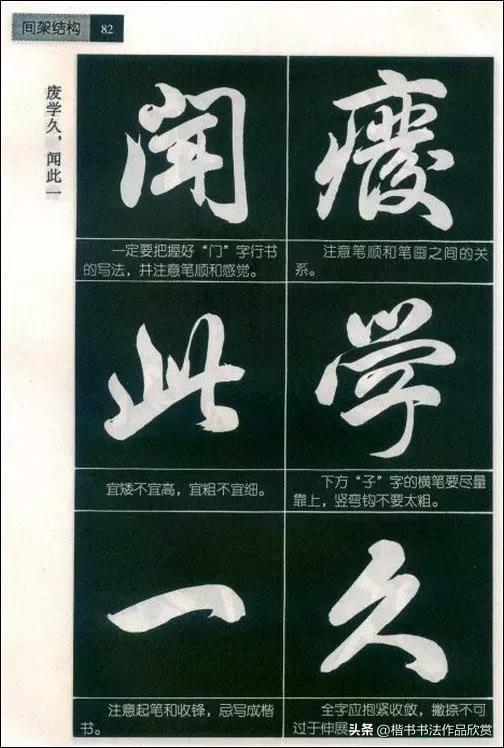 间架结构 82
废学久，闻此一
廢
注意笔顺和笔画之间的关
系。
学
下方“子”字的横笔要尽量
靠上，竖弯钩不要太粗。
久
全字应抱紧收敛，撇捺不可
过于伸展
闻
一定要把握好“门”字行书
的写法，并注意笔顺和感觉。
此
宜矮不宜高，宜粗不宜细。
一
注意起笔和收锋，忌写成楷
书。
头条 @楷书书法作品欣赏